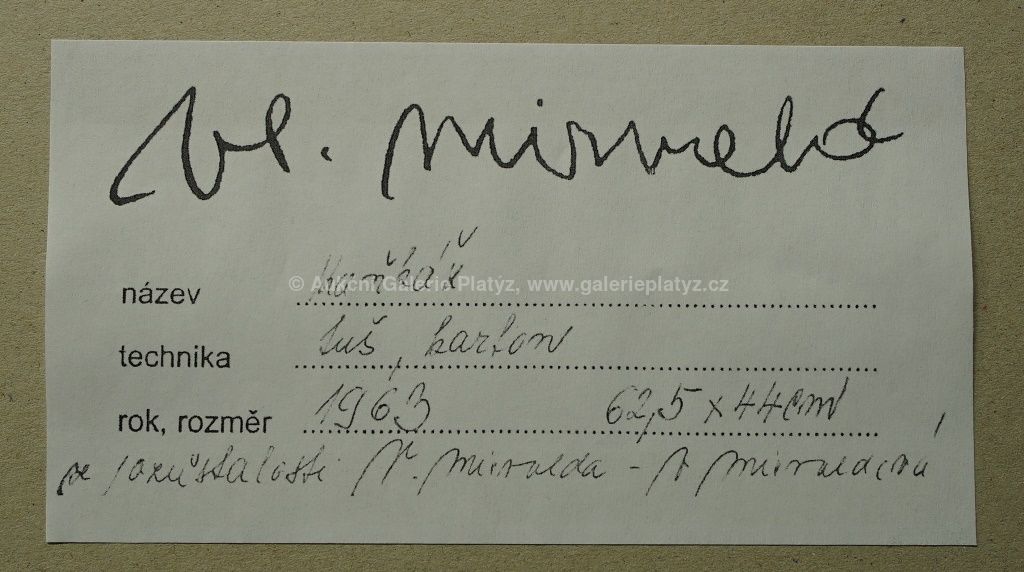 Vl. Mirvald
název Maňžáž
© Aukční Galerie Platýz, www.galerieplatyz.cz
technika tuš, karton
rok, rozměr 1963 62,5 x 44cm
z pozůstalosti V. Mirvalda - Mirvaldová